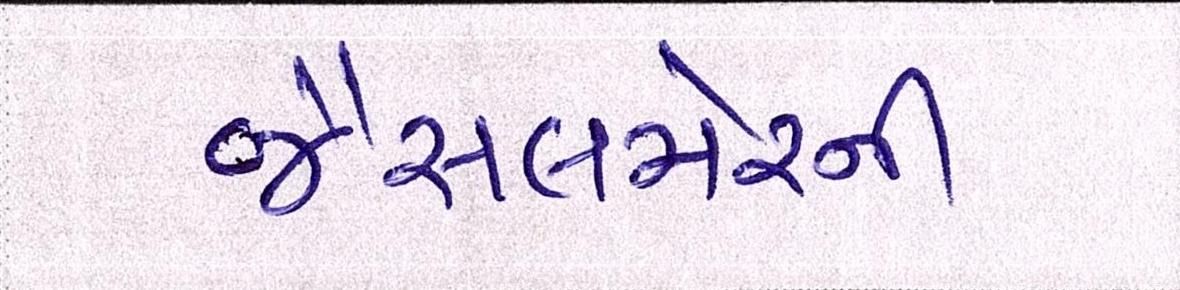 જૈસલમેરની